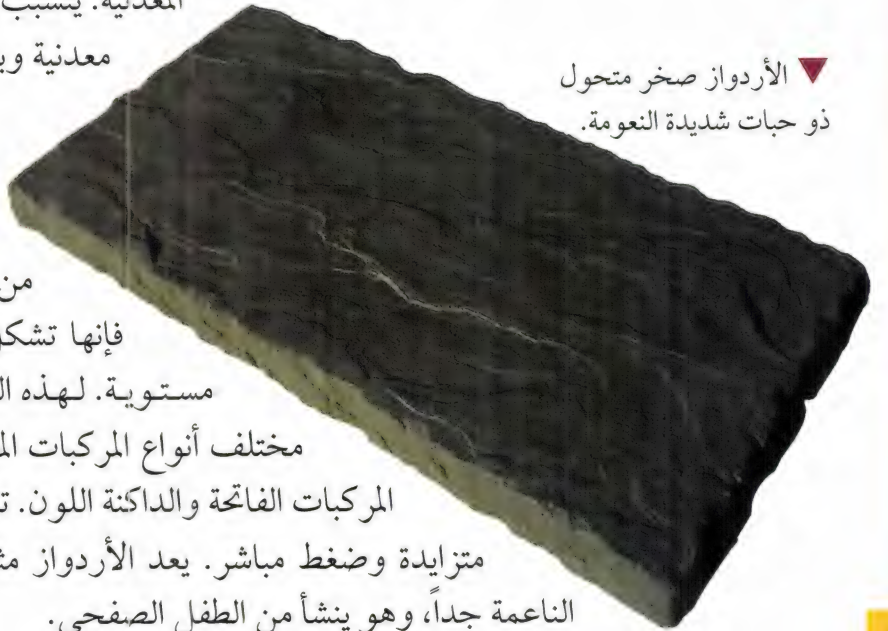 المعدنية. يتسبب
معدنية
▼ الأردواز صخر متحول
ذو حبات شديدة النعومة.
من
فإنها تشكل
مستوية. لهذه
مختلف أنواع المركبات
المركبات الفاتحة والداكنة اللون.
متزايدة وضغط مباشر. يعد الأردواز
الناعمة جداً، وهو ينشأ من الطفل الصفحي.